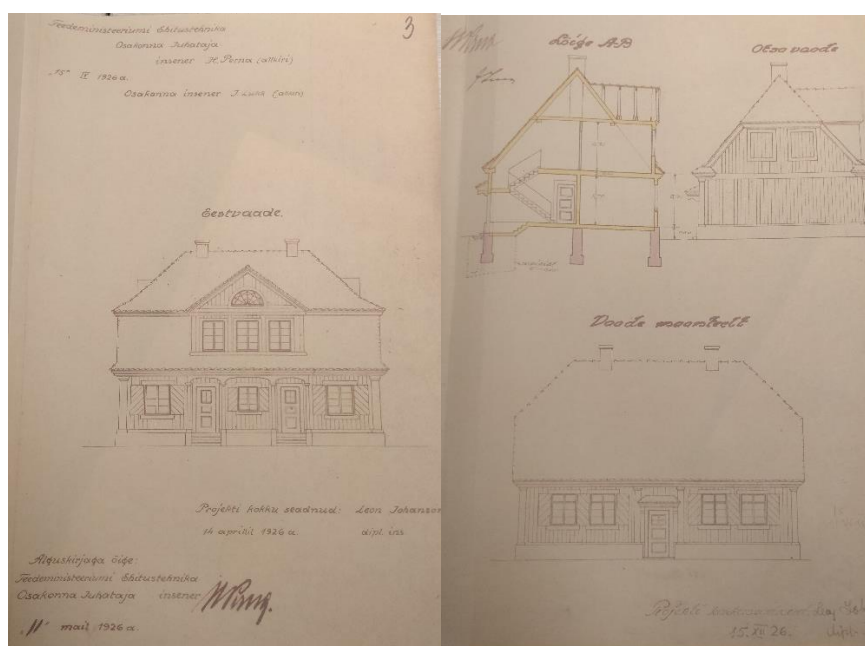 3
Teedeministeeriumi Ehitustehnika
Osakonna Juhataja
insener H. Perna (allkiri)
"15" IV 1926 a.
Osakonna insener J. (allkiri)
Eestvaade.
Projekti kokku seadnud: Leon Johanson
14 aprillil 1926 a. dipl. ins
Alguskirjaga õige:
Teedeministeeriumi Ehitustehnika
Osakonna Juhataja insener
"11" mail 1926 a.
Lõige A-B
Otsa vaade
Vaade maanteelt
Projekti
15. XII 26. dipl.